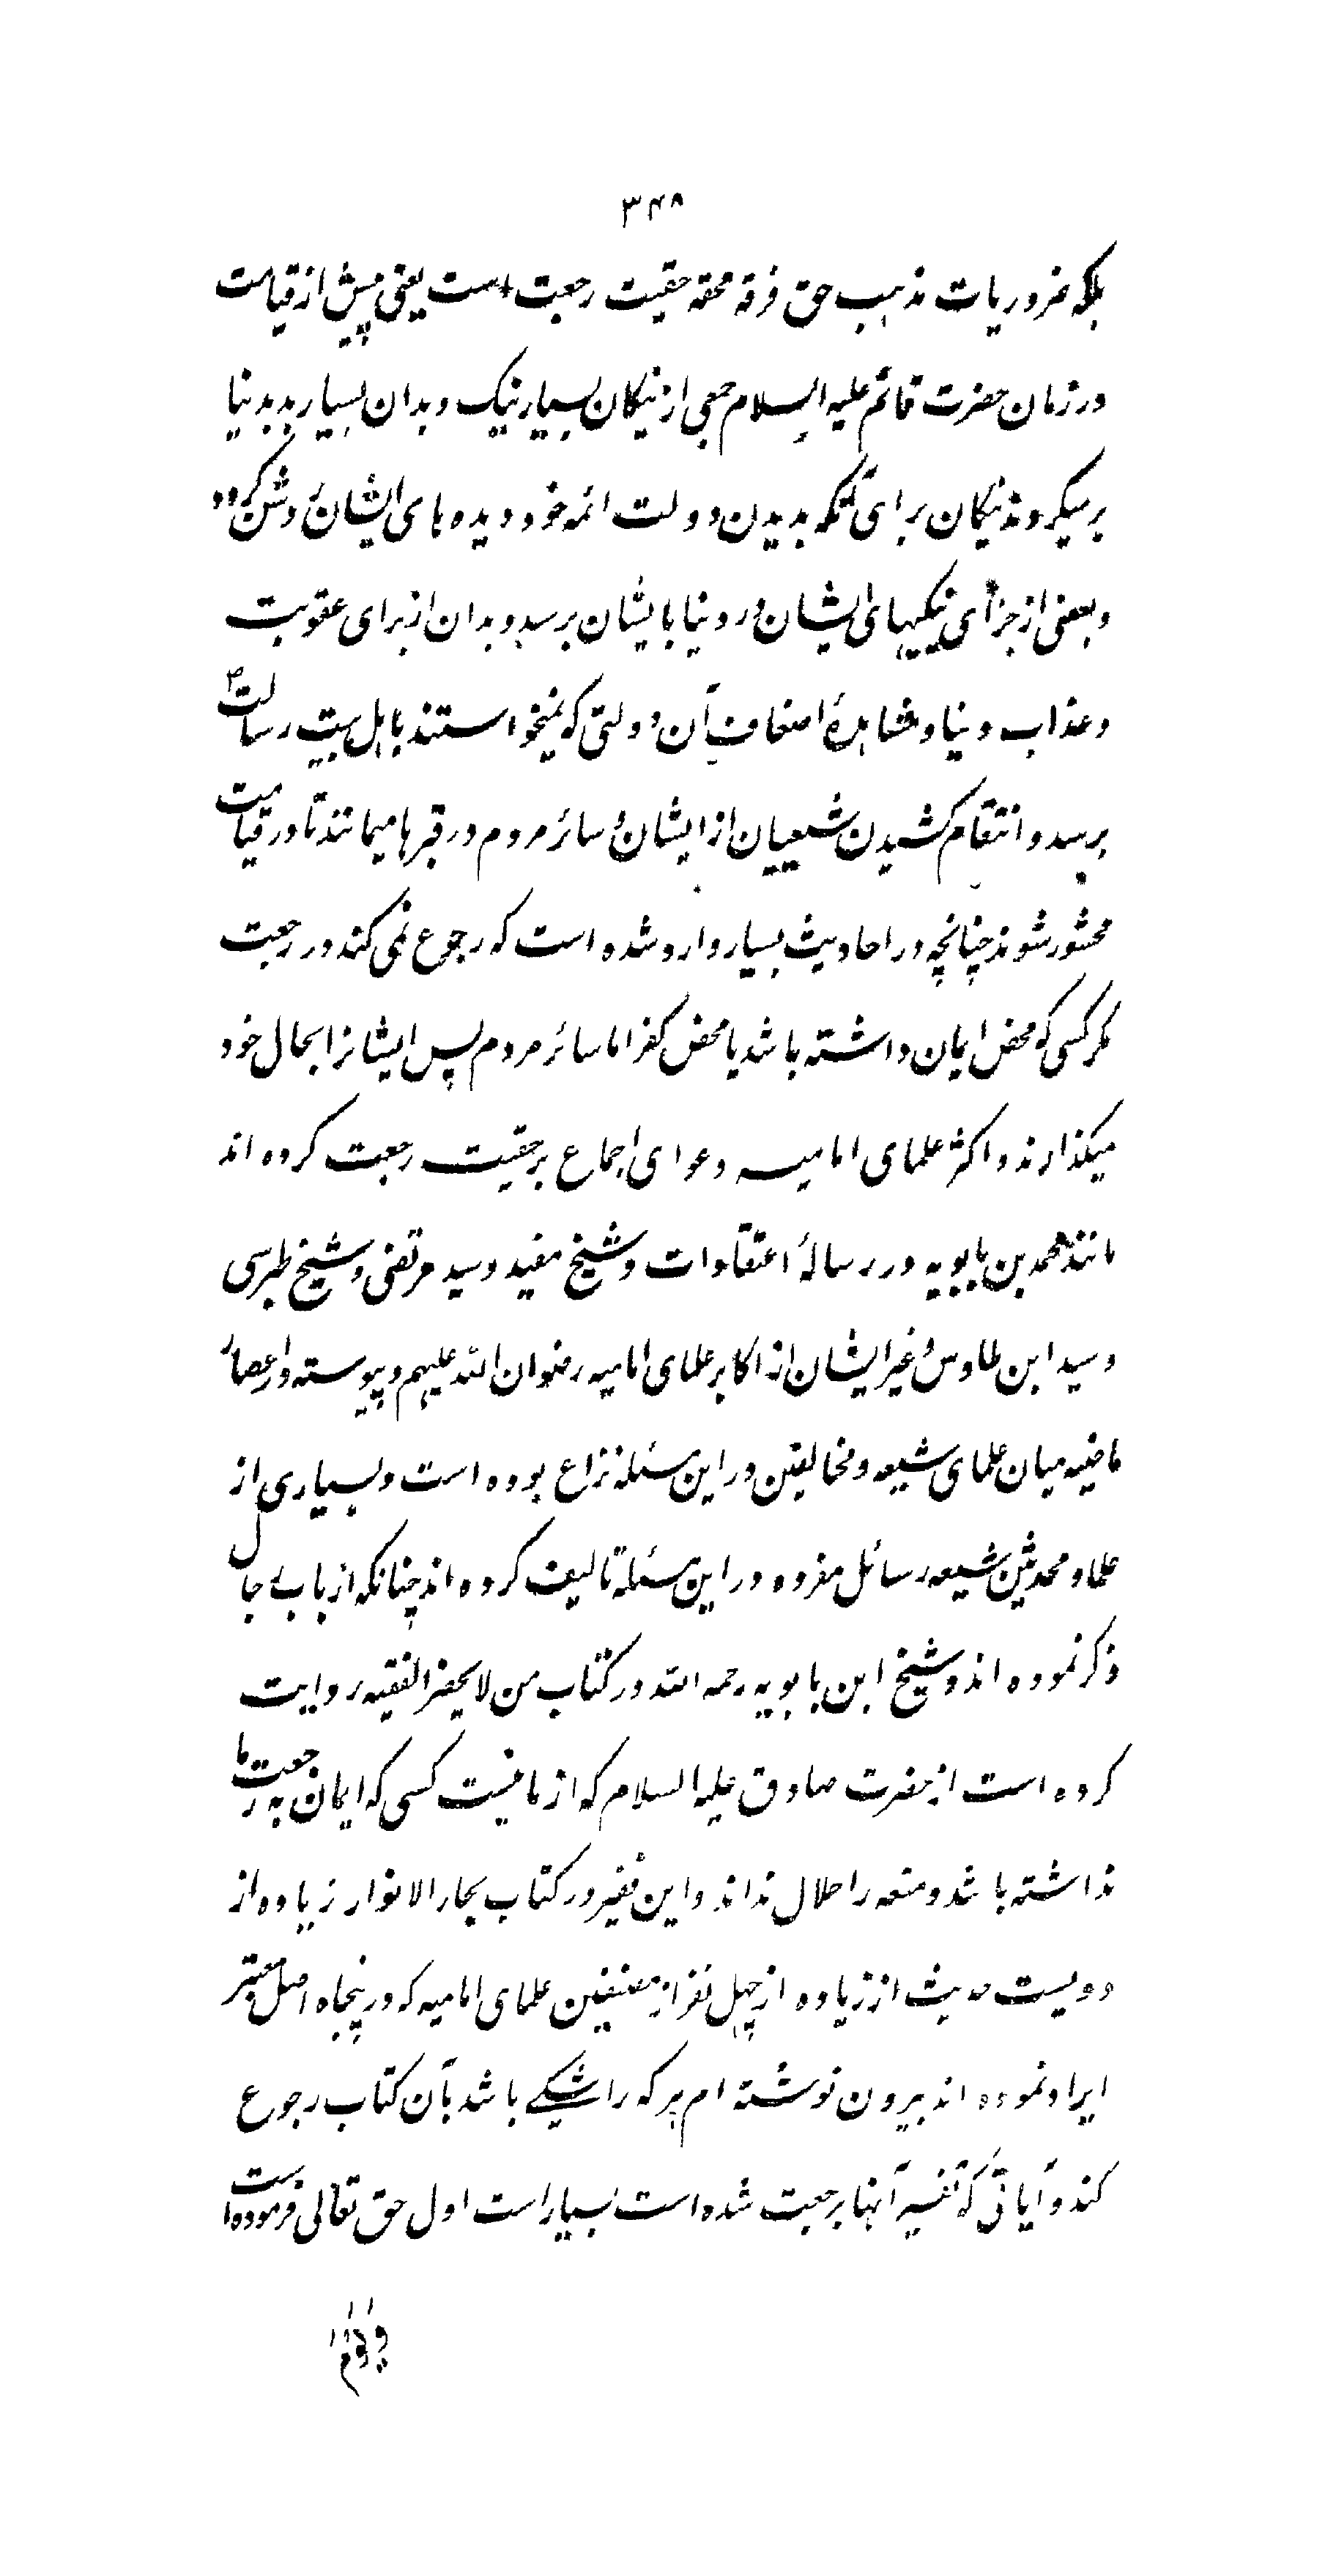 ۳۴۸
بلکه ضروریات مذهب حق فرقهٔ محقه حقیت رجعت است یعنی پیش از قیامت
در زمان حضرت قائم علیه السلام جمعی از نیکان بسیار نیک و بدان بسیار بد بدنیا
برمیگردند نیکان برای آنکه بدیدن دولت ائمه خود دیده های ایشان روشن گردد
و بعضی از جزای نیکیهای ایشان در دنیا بایشان برسد و بدان از برای عقوبت
و عذاب دنیا و مشاهدهٔ اضعاف آن دولتی که نمیخواستند باهل بیت رسالت ؐ
برسد و انتقام کشیدن شیعیان از ایشان و سائر مردم در قبرها میمانند تا در قیامت
محشور شوند چنانچه در احادیث بسیار وارد شده است که رجوع نمی کند در رجعت
مگر کسی که محض ایمان داشته باشد یا محض کفر اما سائر مردم پس ایشانرا بحال خود
میکذارند و اکثر علمای امامیه دعوای اجماع بر حقیت رجعت کرده اند
مانند محمد بن بابویه در رسالهٔ اعتقادات و شیخ مفید و سید مرتضی و شیخ طبرسی
و سید ابن طاوس و غیر ایشان از اکابر علمای امامیه رضوان الله علیهم و پیوسته در اعصار
ماضیه میان علمای شیعه و مخالفین در این مسئله نزاع بوده است و بسیاری از
علما و محدثین شیعه رسائل مفرده در این مسئله تالیف کرده اند چنانکه ارباب رجال
ذکر نموده اند و شیخ ابن بابویه رحمه الله در کتاب من لا یحضر الفقیه روایت
کرده است از حضرت صادق علیه السلام که از ما نیست کسی که ایمان به رجعت ما
نداشته باشد و متعه را حلال نداند و این فقیر در کتاب بحار الانوار زیاده از
دویست حدیث از زیاده از چهل نفر از مصنفین علمای امامیه که در پنجاه اصل معتبر
ایراد نموده اند بیرون نوشته ام هر که را شکے باشد بآن کتاب رجوع
کند و آیاتی که تفسیر آنها برجعت شده است بسیار است اول حق تعالی فرموده است